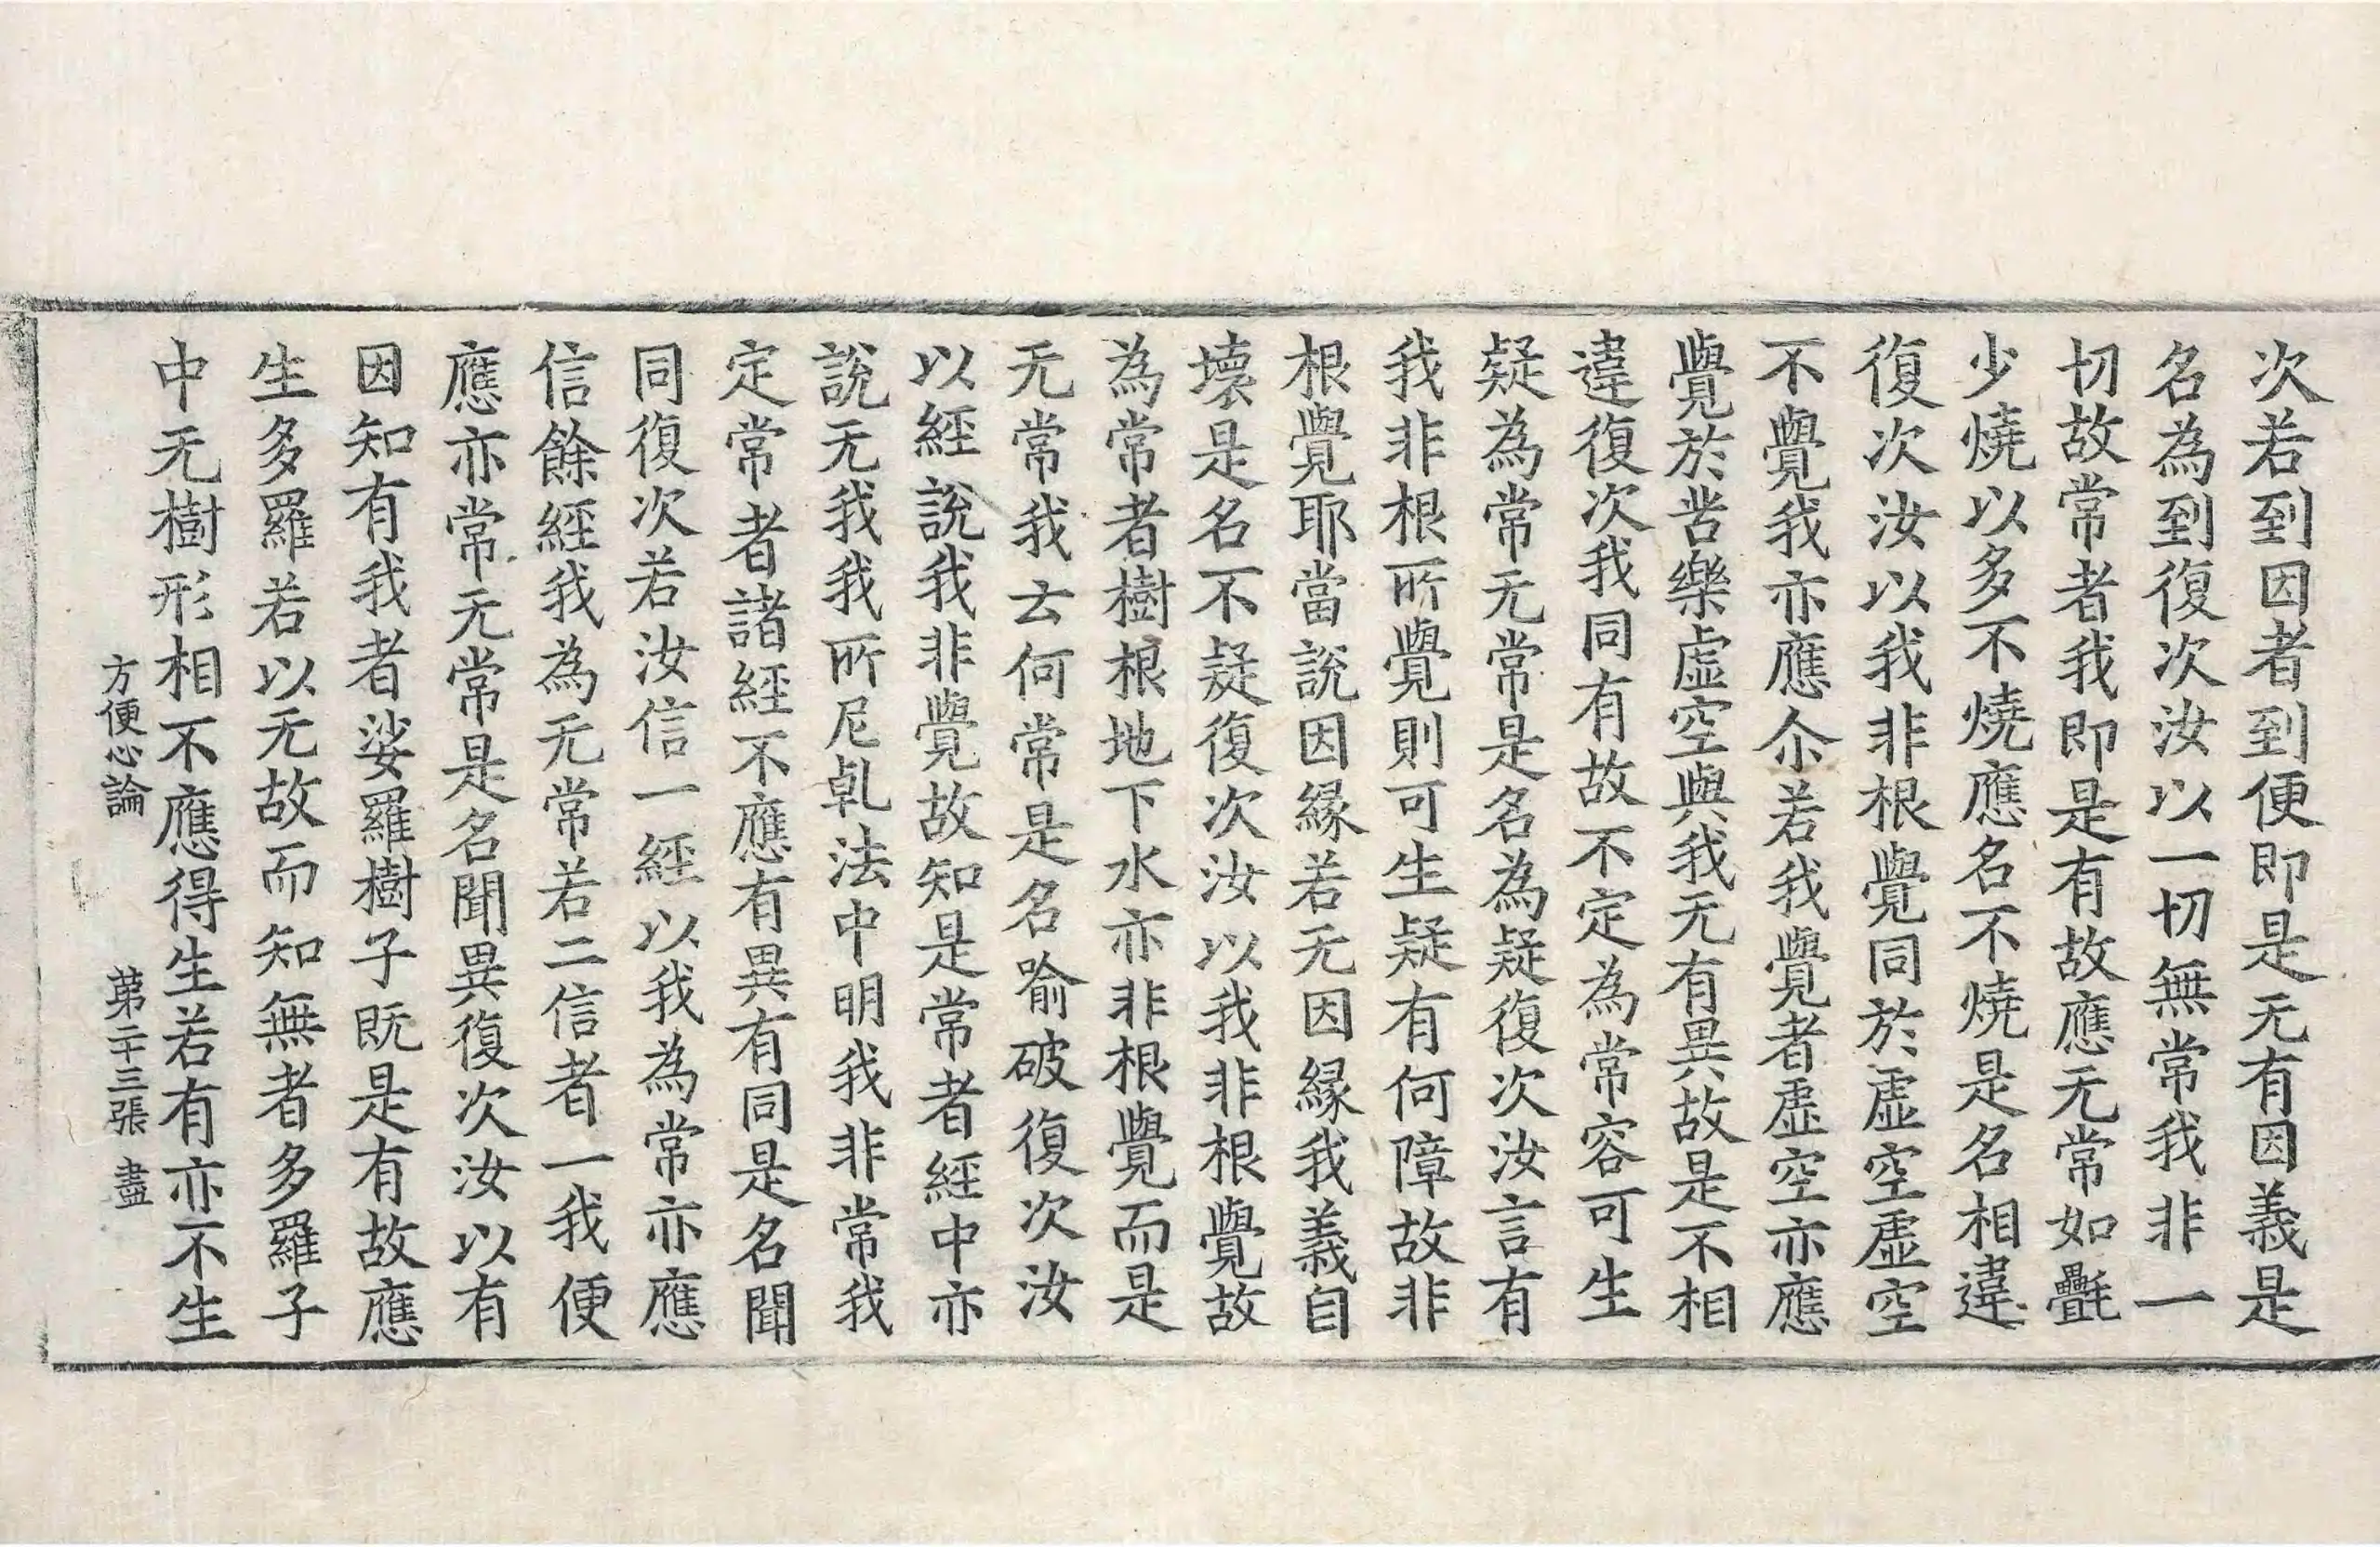 次若到因者到便即是无有因義是
名為到復次汝以一切無常我非一
切故常者我即是有故應无常如㲲
少燒以多不燒應名不燒是名相違
復次汝以我非根覺同於虛空虛空
不覺我亦應尒若我覺者虛空亦應
覺於苦樂虛空與我无有異故是不相
違復次我同有故不定為常容可生
疑為常无常是名為疑復次汝言有
我非根所覺則可生疑有何障故非
根覺耶當說因緣若无因緣我義自
壞是名不疑復次汝以我非根覺故
為常者樹根地下水亦非根覺而是
无常我云何常是名喻破復次汝
以經說我非覺故知是常者經中亦
說无我我所尼乹法中明我非常我
定常者諸經不應有異有同是名聞
同復次若汝信一經以我為常亦應
信餘經我為无常若二信者一我便
應亦常无常是名聞異復次汝以有
因知有我者娑羅樹子既是有故應
生多羅若以无故而知無者多羅子
中无樹形相不應得生若有亦不生
方便心論 苐二十三張 盡